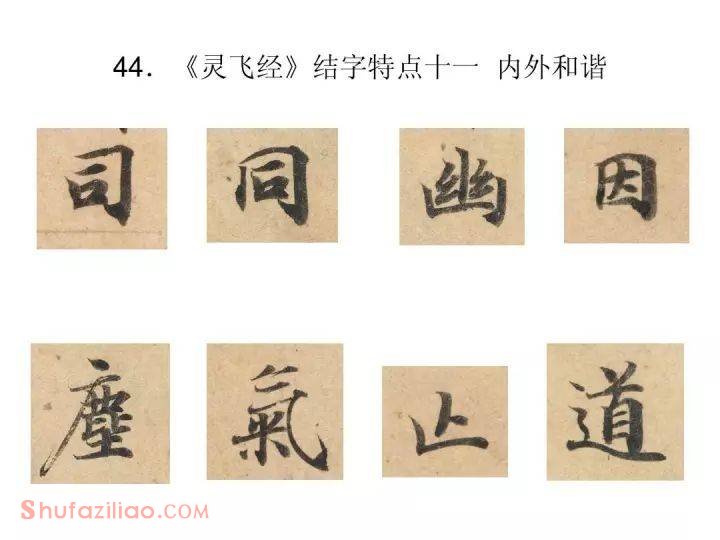 44. 《灵飞经》结字特点十一 内外和谐
司 同 幽 因
塵 氣 止 道
Shufaziliao.COM